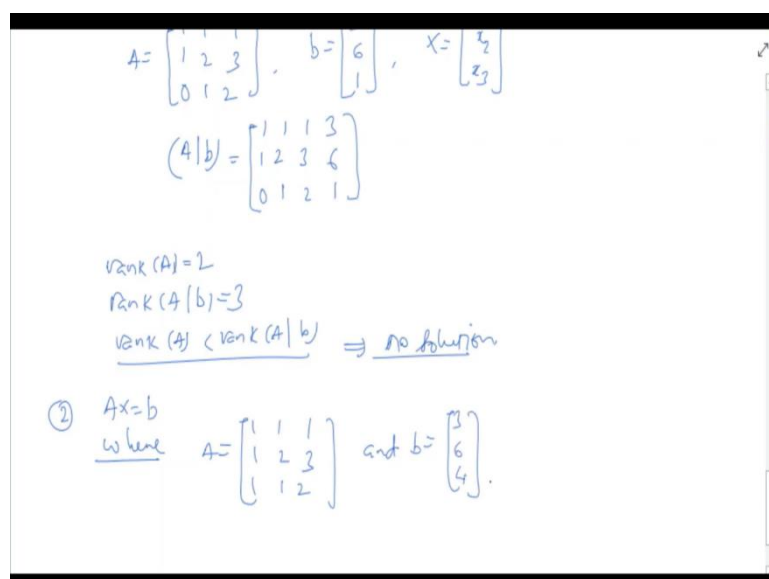 A = [1 1 1; 1 2 3; 0 1 2], b = [; 6; 1], X = [; x2; x3]
(A|b) = [1 1 1 3; 1 2 3 6; 0 1 2 1]
rank (A) = 2
rank (A|b) = 3
rank (A) < rank (A|b) ⇒ no solution
② AX = b
where A = [1 1 1; 1 2 3; 1 1 2] and b = [3; 6; 4].